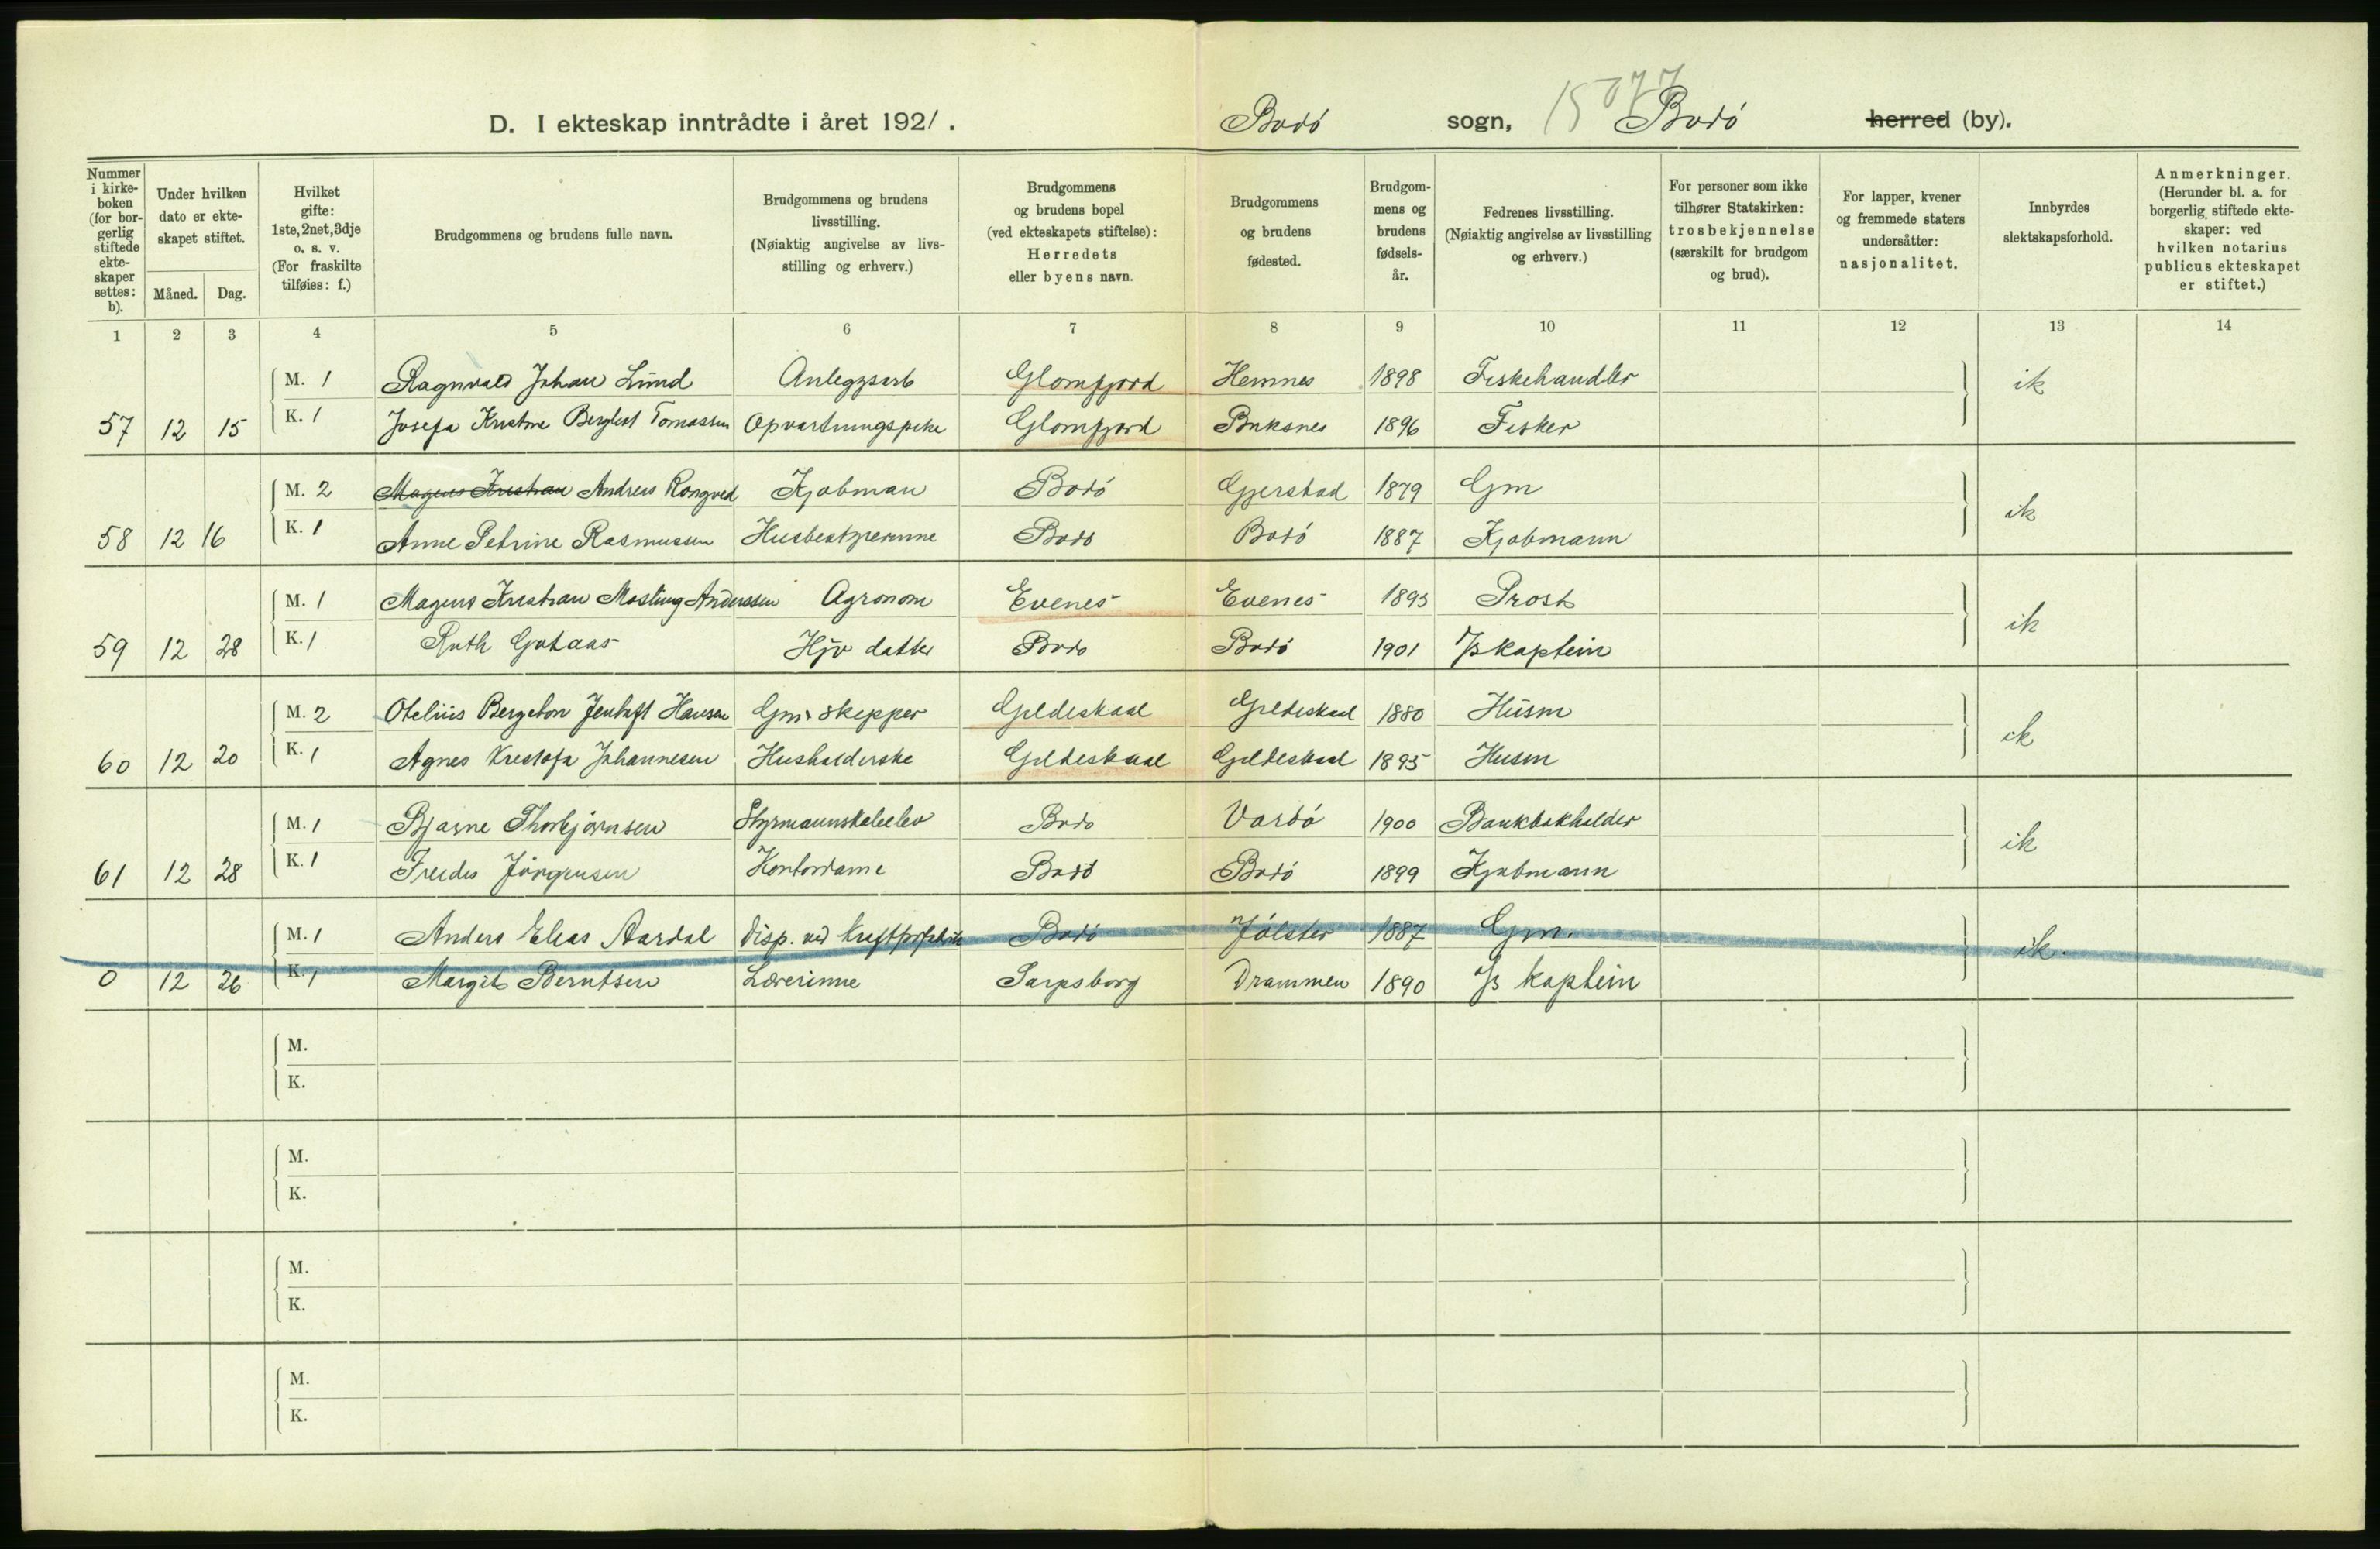 D. I ekteskap inntrådte i året 1921.
Bodó sogn, 15077 Bodó herred (by).
Nummer i kirkeboken (for borgerlig stiftede ekteskaper settes: b).
Under hvilken dato er ekteskapet stiftet.
Måned. Dag.
Hvilket gifte: 1ste, 2net, 3dje o. s. v. (For fraskilte tilføies: f.)
Brudgommens og brudens fulle navn.
Brudgommens og brudens livsstilling. (Nøiaktig angivelse av livsstilling og erhverv.)
Brudgommens og brudens bopel (ved ekteskapets stiftelse): Herredets eller byens navn.
Brudgommens og brudens fødested.
Brudgommens og brudens fødselsår.
Fedrenes livsstilling. (Nøiaktig angivelse av livsstilling og erhverv.)
For personer som ikke tilhører Statskirken: trosbekjennelse (særskilt for brudgom og brud).
For lapper, kvener og fremmede staters undersåtter: nasjonalitet.
Innbyrdes slektskapsforhold.
Anmerkninger. (Herunder bl. a. for borgerlig stiftede ekteskaper: ved hvilken notarius publicus ekteskapet er stiftet.)
1 2 3 4 5 6 7 8 9 10 11 12 13 14
M. 1 Ragnvald Johan Lund Anleggsarb Glomfjord Hemnes 1898 Fiskehandler ik
57 12 15 K. 1 Josefa Kristine Berglist Tomassen Opvartningspike Glomfjord Buksnes 1896 Fisker
M. 2 Magnus Kristian Andreas Rongved Kjøbman Bodó Gjerstad 1879 Gm ik
58 12 16 K. 1 Anne Petrine Rasmussen Husbestyrerinne Bodó Bodó 1887 Kjøbmann
M. 1 Magnus Kristian Mosling Anderssen Agronom Evenes Evenes 1893 Prost ik
59 12 28 K. 1 Ruth Gotaas Hjv datter Bodo Bodó 1901 D/s kaptein
M. 2 Otelius Bergeton Jentoft Hansen Gm & skipper Gildeskaal Gildeskaal 1880 Husm ik
60 12 20 K. 1 Agnes Kristofa Johannesen Husholderske Gildeskaal Gildeskaal 1895 Husm
M. 1 Bjarne Thorbjørnsen Styrmannskoleelev Bodo Vardó 1900 Bankbokholder ik
61 12 28 K. 1 Freidis Jörgensen Kontordame Bodó Bodó 1899 Kjøbmann
M. 1 Anders Elias Aardal Disp. ved Bodó Jölster 1887 Gm. ik.
0 12 26 K. 1 Margit Berntsen Lærerinne Sarpsborg Drammen 1890 D/s kaptein
M.
K.
M.
K.
M.
K.
M.
K.